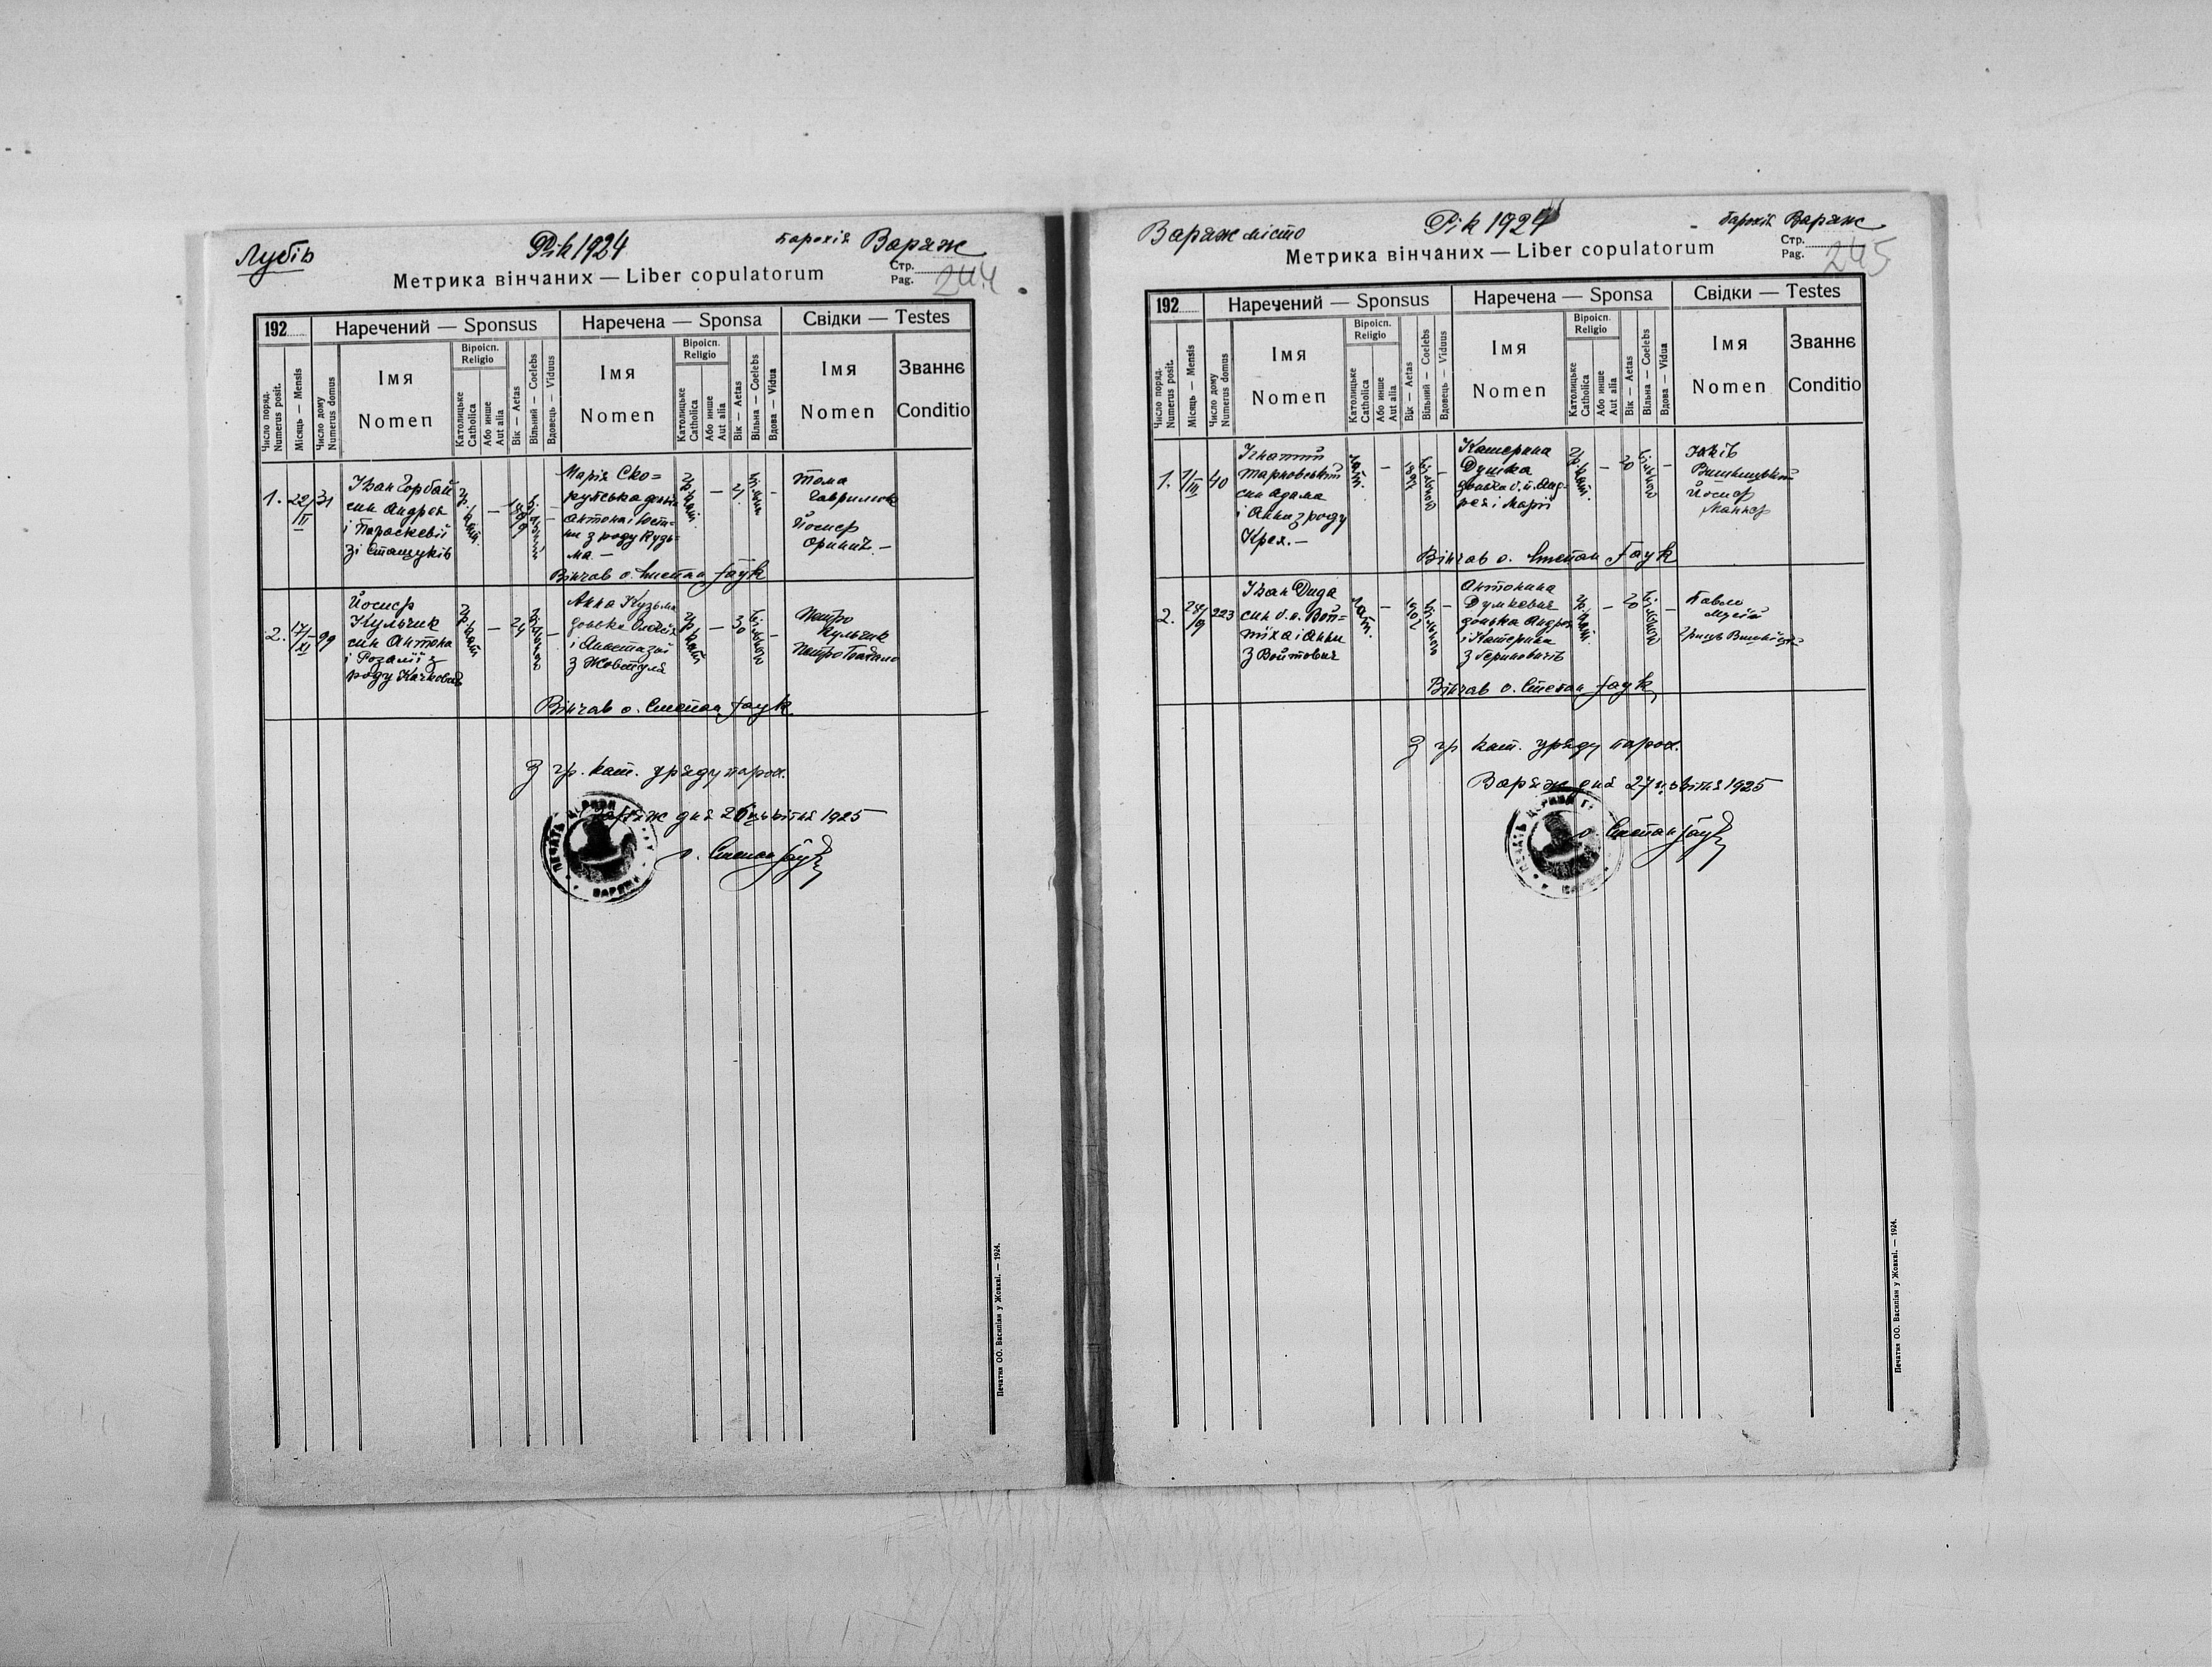 Лубів
Рік 1924
парохія Варяж
Метрика вінчаних — Liber copulatorum
Стр.
Pag.
244
192
Наречений — Sponsus
Наречена — Sponsa
Свідки — Testes
Число поряд.
Numerus posit.
Місяць — Mensis
Число дому
Numerus domus
Імя
Nomen
Віроісп.
Religio
Католицьке
Catholica
Або инше
Aut alia
Вік — Aetas
Вільний — Coelebs
Вдовець — Viduus
Імя
Nomen
Віроісп.
Religio
Католицьке
Catholica
Або инше
Aut alia
Вік — Aetas
Вільна — Coelebs
Вдова — Vidua
Імя
Nomen
Званнє
Conditio
1.
22/II
31
Іван Горбай
син Андрея
і Параскевії
зі Стащуків
гр. кат.
—
Марія Ско=
рупська
Антона і Юсти=
ни з роду Кузь=
ма —
гр. кат.
—
Тома
Гаврилюк
Йосиф
—
Вінчав о. Степан Гаук
2.
17/XI
99
Йосиф
Кульчик
син Антона
і Розалії з
роду
гр. кат.
—
24
Анна Кузьма
донька Олексія
і Анастазії
з
гр. кат.
—
30
Петро
Кульчик
Петро
Вінчав о. Степан Гаук
З гр. кат. уряду парох.
Варяж дня 26 цьвітня 1925
о. Степан Гаук
ВАРЯЖ
Печатня ОО. Василіян у Жовкві. — 1924.
Варяж місто
Рік 1924
парохія Варяж
Метрика вінчаних — Liber copulatorum
Стр.
Pag.
245
192
Наречений — Sponsus
Наречена — Sponsa
Свідки — Testes
Число поряд.
Numerus posit.
Місяць — Mensis
Число дому
Numerus domus
Імя
Nomen
Віроісп.
Religio
Католицьке
Catholica
Або инше
Aut alia
Вік — Aetas
Вільний — Coelebs
Вдовець — Viduus
Імя
Nomen
Віроісп.
Religio
Католицьке
Catholica
Або инше
Aut alia
Вік — Aetas
Вільна — Coelebs
Вдова — Vidua
Імя
Nomen
Званнє
Conditio
1.
40
Ігнатий
Тарновський
син Адама
і Анни з роду
Крея. —
лат.
—
Катерина
Душка
донька б. п. Анд=
рея і Марії
гр. кат.
—
20
Яків
Вишницький
Йосиф
Вінчав о. Степан Гаук
2.
28/9
223
Іван Дида
син б. п. Вой=
тіха і Анни
з Войтович
лат.
—
Антонина
Думкевич
донька Андрея
і Катерина
гр. кат.
—
20
Павло
Мусій
Гриць
Вінчав о. Степан Гаук
З гр кат. уряду парох.
Варяж дня 27 цьвітня 1925
о. Степан Гаук
Печатня ОО. Василіян у Жовкві. — 1924.